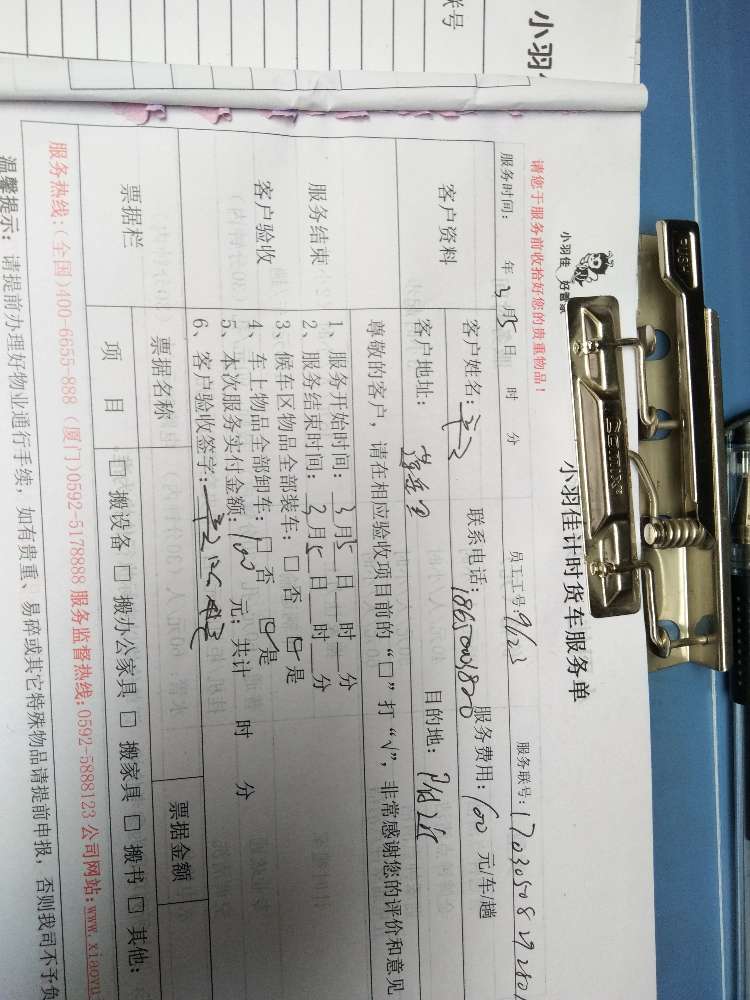 小羽
联号
小羽佳 好管家
小羽佳计时货车服务单
请您于服务前收拾好您的贵重物品!
服务时间: 年 3月5日 时 分 员工工号: 9623 服务联号:
客户资料
客户姓名: 联系电话: 服务费用: 100 元/车/趟
客户地址: 目的地: 附近
尊敬的客户,请在相应验收项目前的“□”打“√”,非常感谢您的评价和意见
服务结束
客户验收
1、服务开始时间: 3月5日 时 分
2、服务结束时间: 3月5日 时 分
3、候车区物品全部装车: □ 否 ☑ 是
4、车上物品全部卸车: □ 否 ☑ 是
5、本次服务实付金额: 100 元; 共计 时 分
6、客户验收签字:
票据栏
票据名称 票据金额
项 目 □ 搬设备 □ 搬办公家具 □ 搬家具 □ 搬书 □ 其他:
服务热线:(全国)400-6655-888 (厦门)0592-5178888 服务监督热线:0592-5888123 公司网站:www.xiaoyu
温馨提示: 请提前办理好物业通行手续, 如有贵重、易碎或其它特殊物品请提前申报, 否则我司不予负